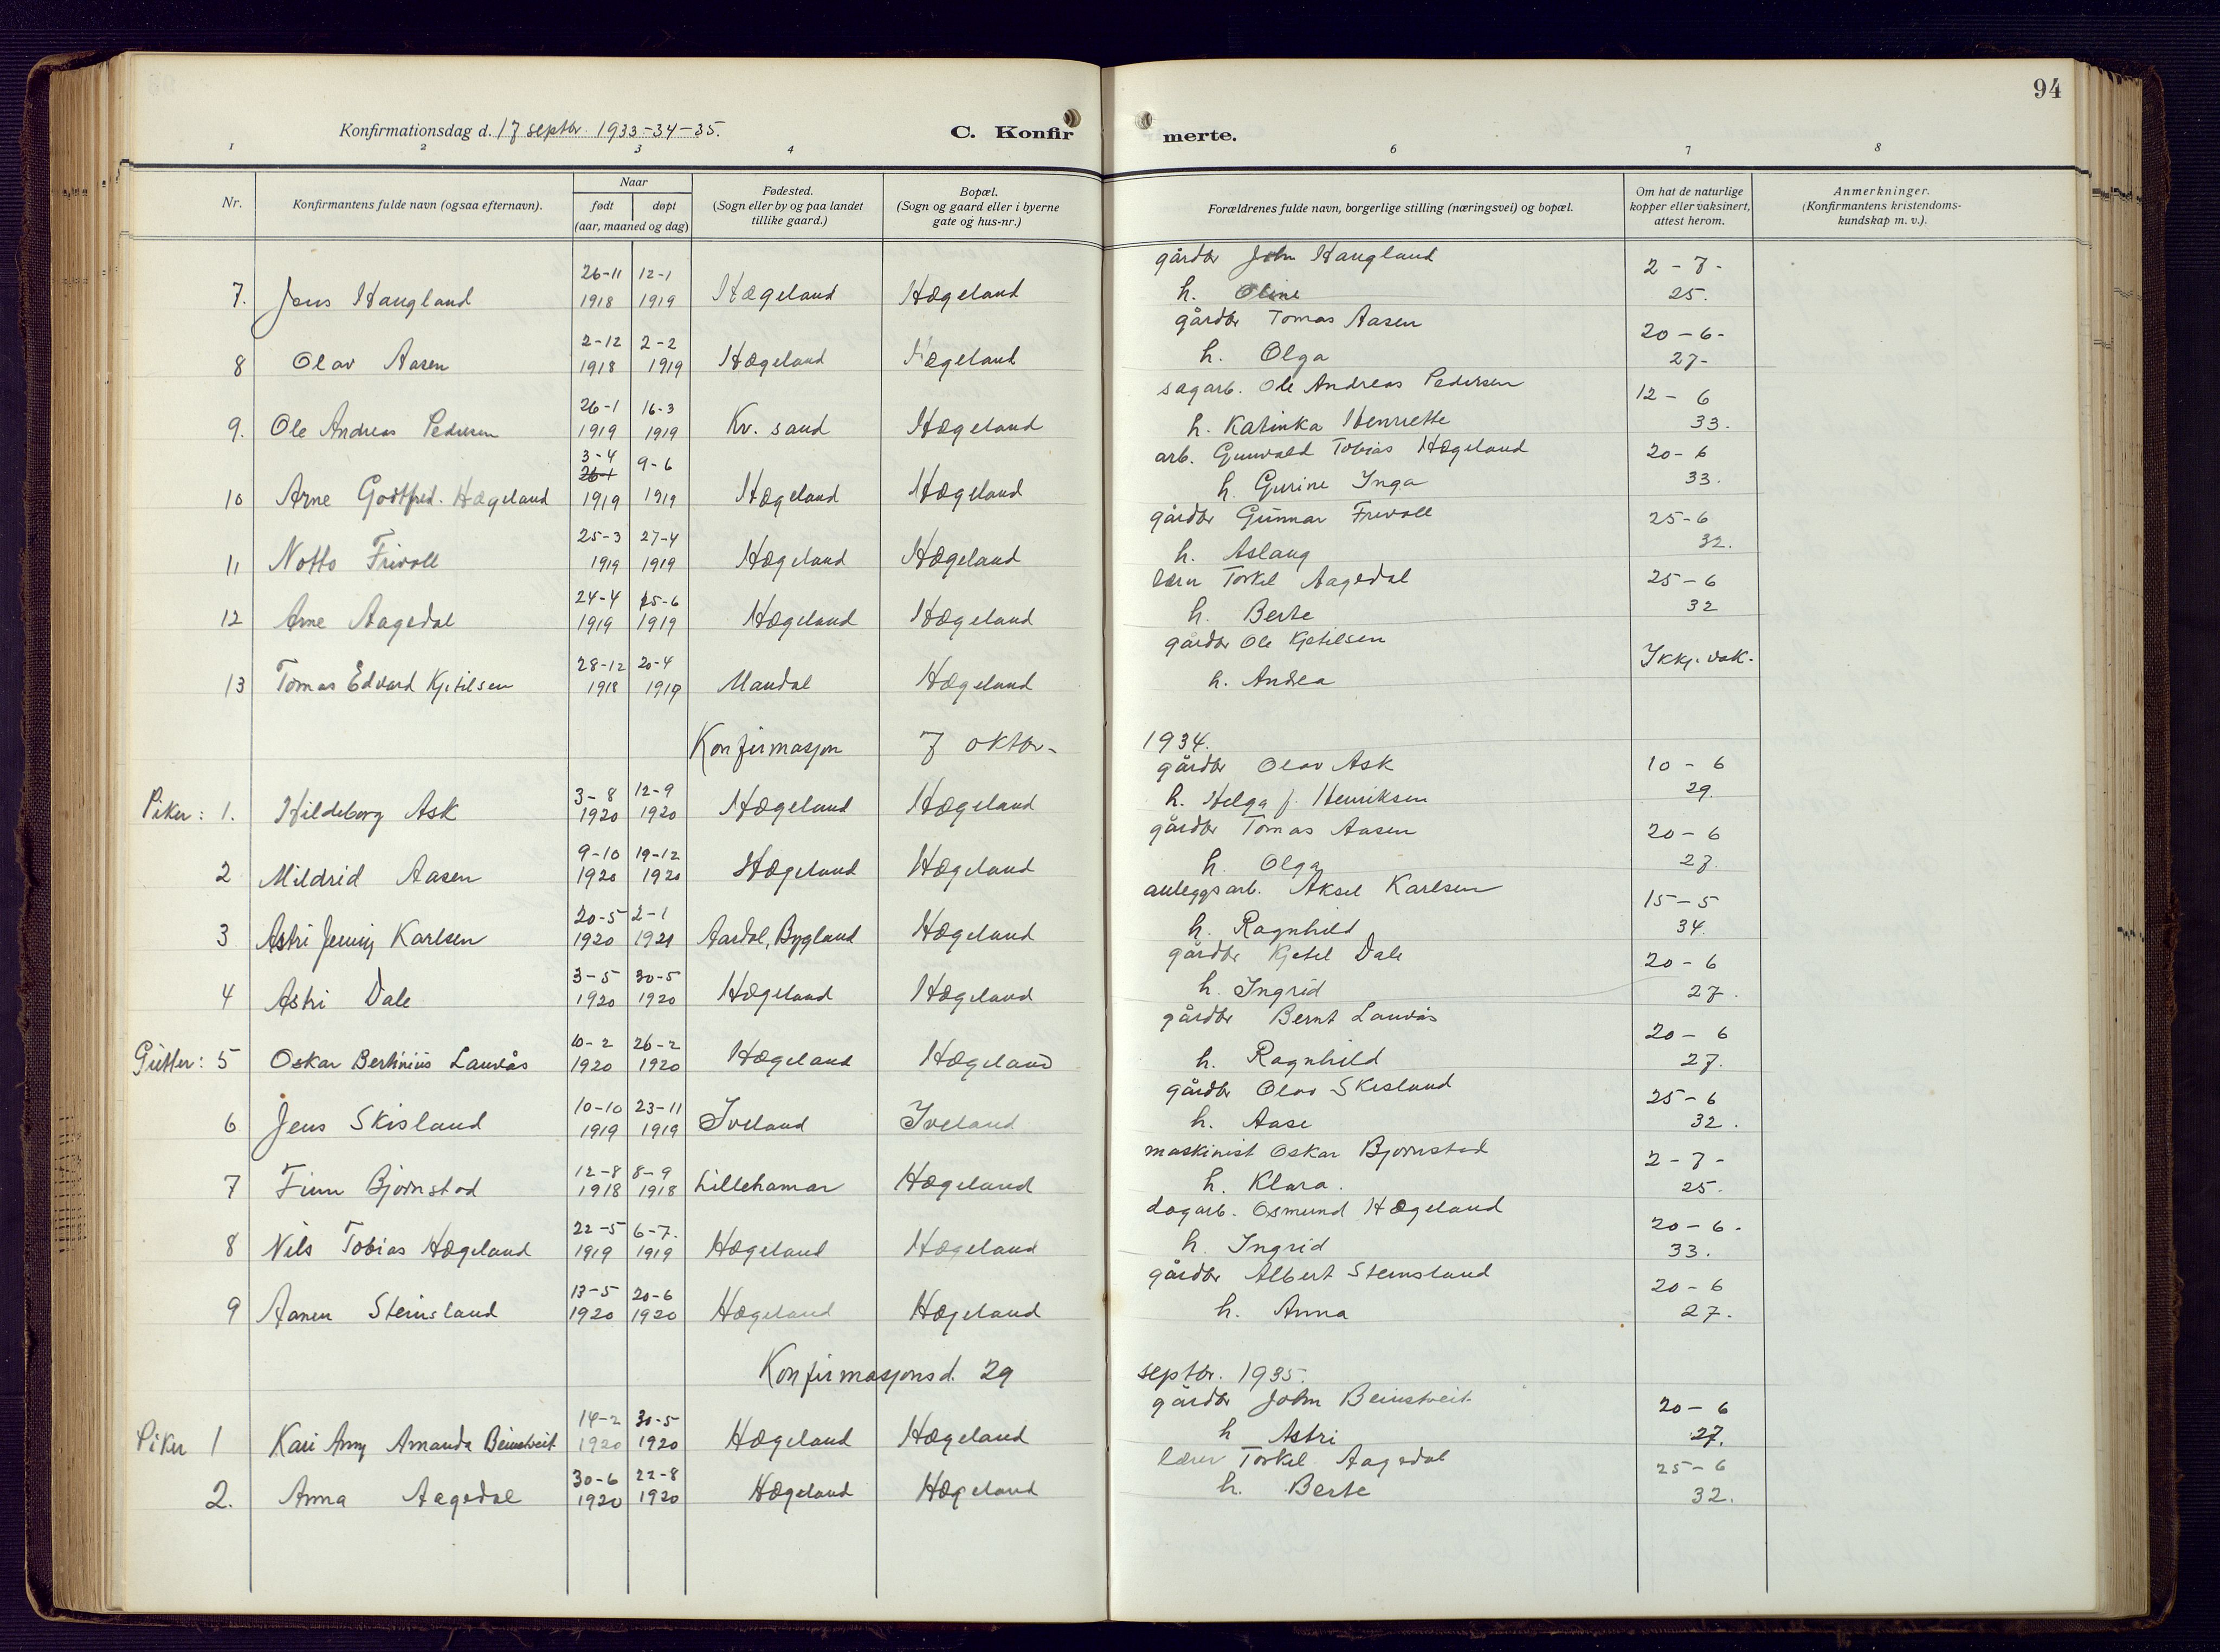 94
Konfirmationsdag d. 17 septbr. 1933-34-35.
C. Konfirmerte.
1 2 3 4 6 7 8
Nr.
Konfirmantens fulde navn (ogsaa efternavn).
Naar
født
døpt
(aar, maaned og dag)
Fødested.
(Sogn eller by og paa landet
tillike gaard.)
Bopæl.
(Sogn og gaard eller i byerne
gate og hus-nr.)
Forældrenes fulde navn, borgerlige stilling (næringsvei) og bopæl.
Om hat de naturlige
kopper eller vaksinert,
attest herom.
Anmerkninger.
(Konfirmantens kristendoms-
kundskap m. v.).
26-11 12-1 gårdbr John Haugland 2-7-
7. Jens Haugland 1918 1919 Hægeland Hægeland h. Oline 25.
2-12 2-2 gårdbr Tomas Aasen 20-6-
8 Olav Aasen 1918 1919 Hægeland Hægeland h. Olga 27-
26-1 16-3 sagarb. Ole Andreas Pedersen 12-6
9. Ole Andreas Pedersen 1919 1919 Kr. sand Hægeland h. Katinka Henriette 33.
3-4 arb. Gunvald Tobias Hægeland 20-6
26-1 9-6
10 Arne Godtfred. Hægeland 1919 1919 Hægeland Hægeland h. Gurine Inga 33.
25-3 27-4 gårdbr Gunnar Frivoll 25-6
11 Notto Frivoll 1919 1919 Hægeland Hægeland h. Aslaug 32.
24-4 15-6 lærer Torkel Aagedal 25-6
12 Arne Aagedal 1919 1919 Hægeland Hægeland h. Berte 32
28-12 20-4 gårdbr Ole Kjetilsen Ikkj. vak.
13 Tomas Edvard Kjetilsen 1918 1919 Mandal Hægeland h. Andrea
Konfirmasjon 7 oktbr- 1934.
3-8 12-9 gårdbr Olav Ask 10-6
Piker: 1. Hildeborg Ask 1920 1920 Hægeland Hægeland h. Helga f. Henriksen 29.
9-10 19-12 gårdbr Tomas Aasen 20-6
2 Mildrid Aasen 1920 1920 Hægeland Hægeland h. Olga 27.
20-5 2-1 anleggsarb. Aksel Karlsen 15-5
3 Astri Jenny Karlsen 1920 1921 Aardal, Bygland Hægeland h. Ragnhild 34.
3-5 30-5 gårdbr Kjetel Dale 20-6
4 Astri Dale 1920 1920 Hægeland Hægeland h. Ingrid 27.
10-2 26-2 gårdbr Bernt Lauvås 20-6
Gutter: 5 Oskar Bertinius Lauvås 1920 1920 Hægeland Hægeland h. Ragnhild 27.
10-10 23-11 gårdbr Olav Skisland 25-6
6 Jens Skisland 1919 1919 Iveland Iveland h. Aase 32.
12-8 8-9 maskinist Oskar Bjørnstad 2-7-
7 Finn Bjørnstad 1918 1918 Lillehamar Hægeland h. Klara. 25.
22-5 6-7. dagarb. Osmund Hægeland 20-6-
8 Nils Tobias Hægeland 1919 1919 Hægeland Hægeland h. Ingrid 33.
13-5 20-6 gårdbr Albert Steinsland 20-6
9 Aanen Steinsland 1920 1920 Hægeland Hægeland h. Anna 27.
Konfirmasjonsd. 29 septbr. 1935.
14-2 30-5 gårdbr John Beinstveit 20-6
Piker 1 Kari Amy Amanda Beinstveit 1920 1920 Hægeland Hægeland h Astri 27.
30-6 22-8 lærer Torkel Aagedal 25-6
2. Anna Aagedal 1920 1920 Hægeland Hægeland h. Berte 32.